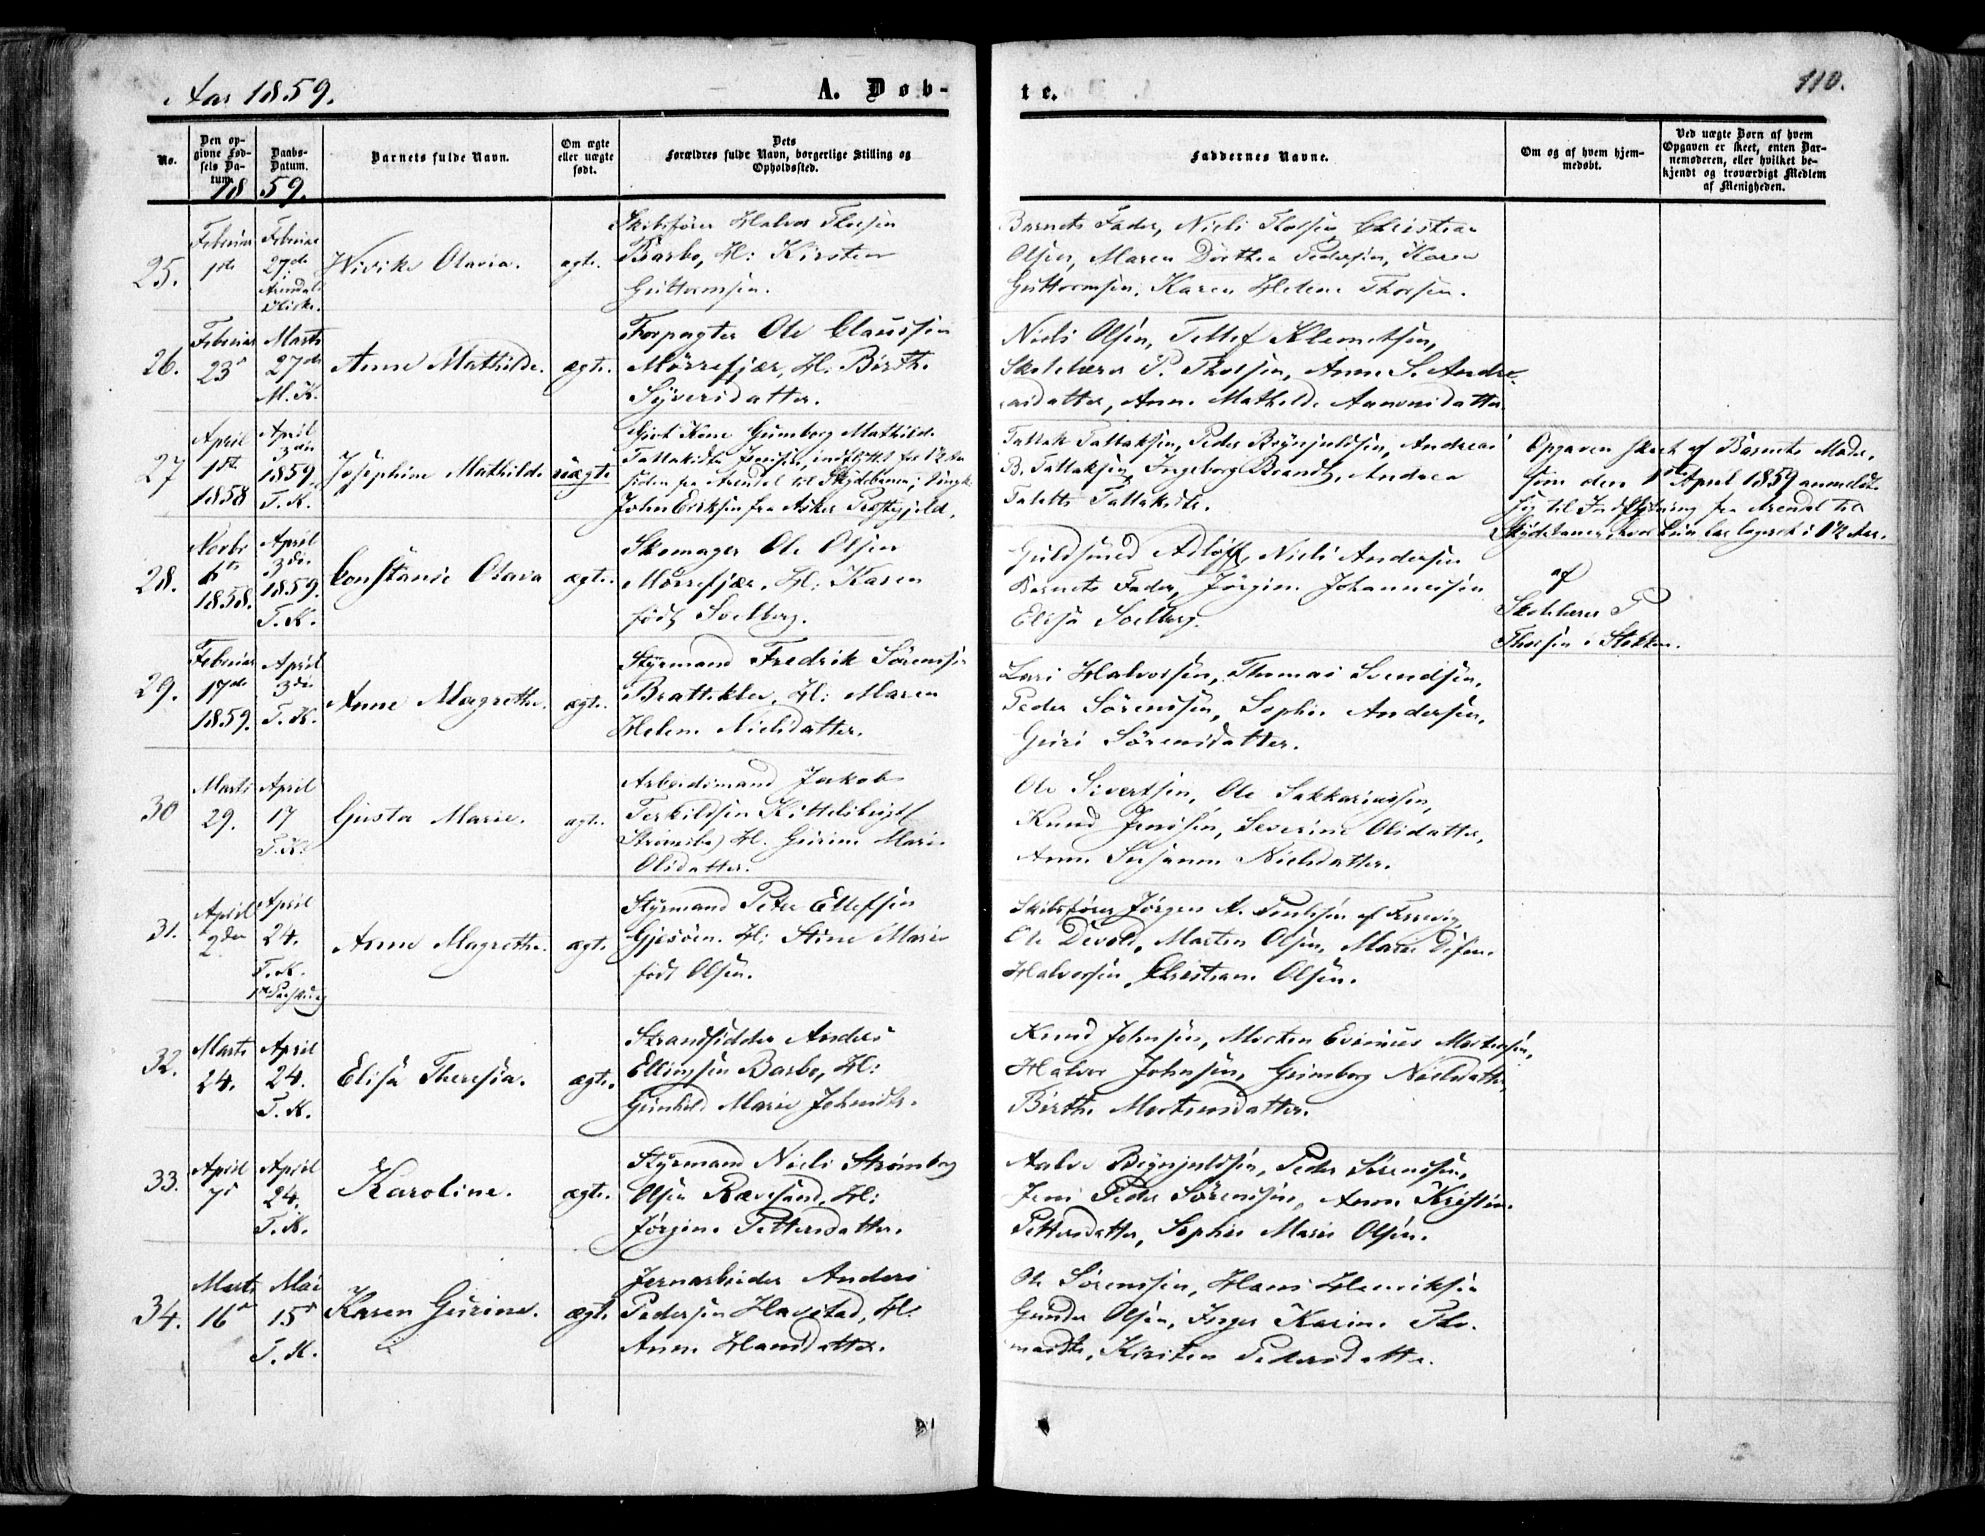 Aar 1859.
A. Døb-
te.
110.
No.
Den op-
givne Fød-
sels Da-
tum.
Daabs-
Datum.
Barnets fulde Navn.
Om ægte
eller uægte
født.
Dets
Forældres fulde Navn, borgerlige Stilling og
Opholdssted.
Faddernes Navne.
Om og af hvem hjem-
medøbt.
Ved uægte Børn af hvem
Opgaven er skeet, enten Bar-
nemoderen, eller hvilket be-
kjendt og troværdigt Medlem
af Menigheden.
18 59.
25.
Februar
1ste
Februar
27de
Arendals
Kirke.
Olavia.
ægte.
Skibsfører Halvor Thorsen
Barbo, H: Kirsten
Guttormsen.
Barnets Fader, Niels Thorsen, Christian
Olsen, Maren Dorthea Pedersen, Karen
Guttormsen, Karen Helene Thorsen.
26.
Februar
23
Marts
27de
M. K.
Anne Mathilde.
ægte.
Forpagter Ole Claussen
Mørrefjær, H. Birthe
Syversdatter.
Niels Olsen, Tellef Klemetsen,
Skolelærer P. Thorsen, Anne S. Andre-
asdatter, Anne Mathilde Aanonsdatter
27
April
1ste
1858
April
3die
1859
T. K.
Josephine Mathilde
uægte
Gift Kone Gunborg Mathilde
siden fra Arendal til Skydebanen; Ungk.
John Eriksen fra Asker Præstegjeld.
Tallak Tallaksen, Peder Brynjuldsen, Andreas
B. Tallaksen, Ingeborg Brandt, Andrea
Tallakdtr.
Opgaven skeet af Barnets Moder,
som den 1ste April 1859 anmeldte
sig til Indflytning fra Arendal til
28.
Novbr
6te
1858.
April
3die
1859.
T. K.
Constance Olava
ægte.
Skomager Ole Olsen
Mørrefjær, H: Karen
født Solberg.
Guldsmed Adloff, Niels Andersen
Barnets Fader, Jørgine Johannessen
Elisa Solberg.
af
Skolelærer P
Thorsen i Stokken.
29.
Februar
17de
1859.
April
3die
T. K.
Anne Magrethe.
ægte.
Styrmand Fredrik Sørensen
Bratteklev, H: Maren
Helene Nielsdatter.
Lars Halvorsen, Thomas Svendsen,
Peder Sørensen, Sophie Andersen,
Guri Sørensdatter.
30
Marts
29.
April
17
T. K.
Gusta Marie.
ægte.
Arbeidsmand Jakob
Terkildsen Kittelsbugt
Strømsbo, H. Gurine Marie
Olsdatter.
Ole Sivertsen, Ole Sakkariassen,
Knud Jensen, Severine Olsdatter,
Anne Susanne Nielsdatter.
31.
April
2den
April
24.
T. K.
Anne Magrethe.
ægte.
Styrmand Peter Ellefsen
Gjesøen. H: Stine Marie
født Olsen.
Skibsfører Jørgen A.
Ole Devold, Marten Olsen, Maren
Halvorsen, Christiane Olsen.
32.
Marts
24.
April
24.
T. K.
Elisa Theresia.
ægte.
Strandsidder Anders
Ellingsen Barbo, H:
Gunhild Marie Johnsdtr.
Knud Johnsen, Morten Mortensen,
Halvor Johnsen, Gunborg Nielsdatter,
Birthe Mortensdatter.
33.
April
7
April
24.
T. K.
Karoline.
ægte.
Styrmand Niels Strømberg
Olsen Rævesand, H:
Jørgine Pettersdatter.
Aalve Brynjuldsen, Peder Sørensen,
Jens Peder Sørensen, Anne Kirstine
Pettersdatter, Sophie Marie Olsen.
34.
Marts
16
Mai
15
T. K.
Karen Gurine.
ægte.
Jernarbeider Anders
Pedersen Havstad, H.
Anne Hansdatter.
Ole Sørensen, Hans Henriksen
Gunder Olsen, Inger Karine Tho-
masdtr, Kirsten Pedersdatter.